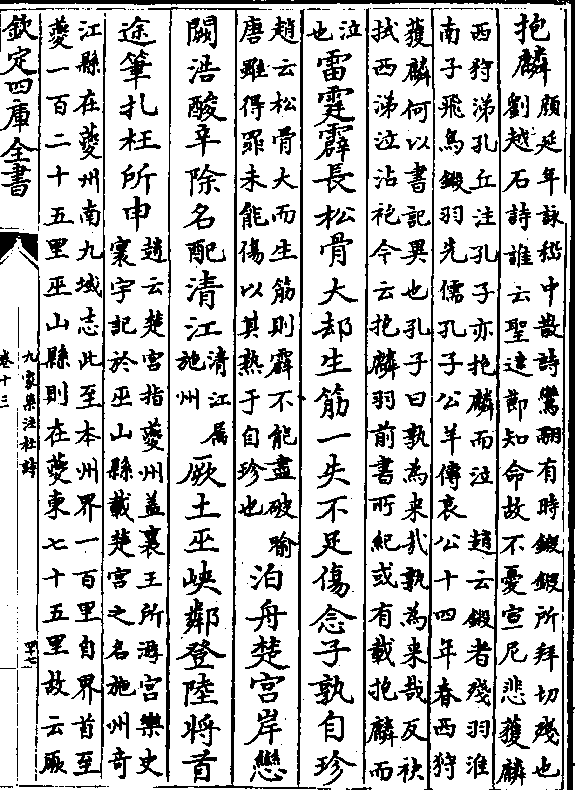 抱麟
顔延年詠嵇中散詩鸞翮有時鎩鎩所拜切殘也
劉越石詩誰云聖達節知命故不憂宣尼悲獲麟
西狩涕孔丘注孔子亦抱麟而泣 趙云鎩者殘羽淮
南子飛鳥鎩羽先儒孔子公羊傳哀公十四年春西狩
獲麟何以書記異也孔子曰孰為来哉孰為来哉反袂
拭西涕泣沾袍今云抱麟羽前書所紀或有載抱麟而
泣
也
雷霆霹長松骨大却生筋一失不足傷念子孰自珍
趙云松骨大而生筋則霹不能盡破喻
唐雖得罪未能傷以其熟于自珍也
泊舟楚宫岸戀
闕浩酸辛除名配清江
清江屬
施州
厥土巫峽鄰登陸將首
途筆札枉所申
趙云楚宫指夔州盖襄王所游宫樂史
寰宇記於巫山縣載楚宫之名施州竒
江縣在夔州南九域志此至本州界一百里自界首至
夔一百二十五里巫山縣則在夔東七十五里故云厥
欽定四庫全書
九家集注杜詩
卷十三